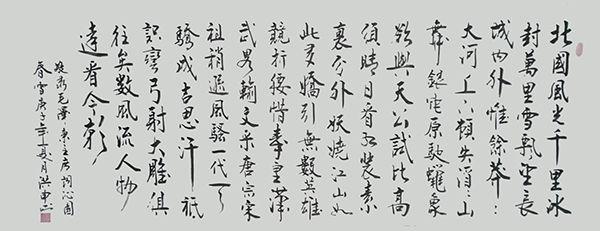 北國風光千里冰
封萬里雪飄望長
城内外惟餘莽〻
大河上下頓失滔〻山
舞銀蛇原馳蠟象
欲與天公試比高
須晴日看紅裝素
裹分外妖嬈江山如
此多嬌引無數英雄
競折腰惜秦皇漢
武略輸文采唐宗宋
祖稍遜風騷一代天
驕成吉思汗祇
識彎弓射大雕俱
往矣數風流人物
還看今朝
毛澤東主席詞沁園
春雪庚子年夏月洪申